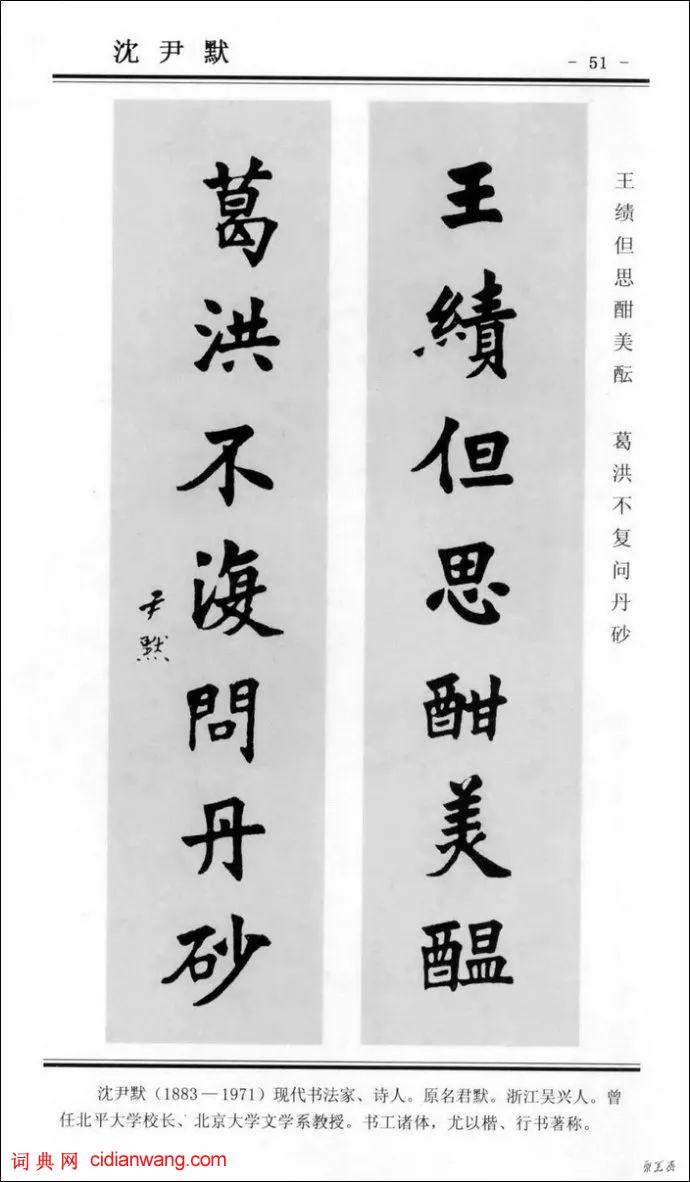 沈尹默
- 51 -
王绩但思酣美酝 葛洪不复问丹砂
王績但思酣美醖
葛洪不復問丹砂
尹默
沈尹默（1883—1971）现代书法家、诗人。原名君默。浙江吴兴人。曾
任北平大学校长、北京大学文学系教授。书工诸体，尤以楷、行书著称。
词典网 cidianwang.com